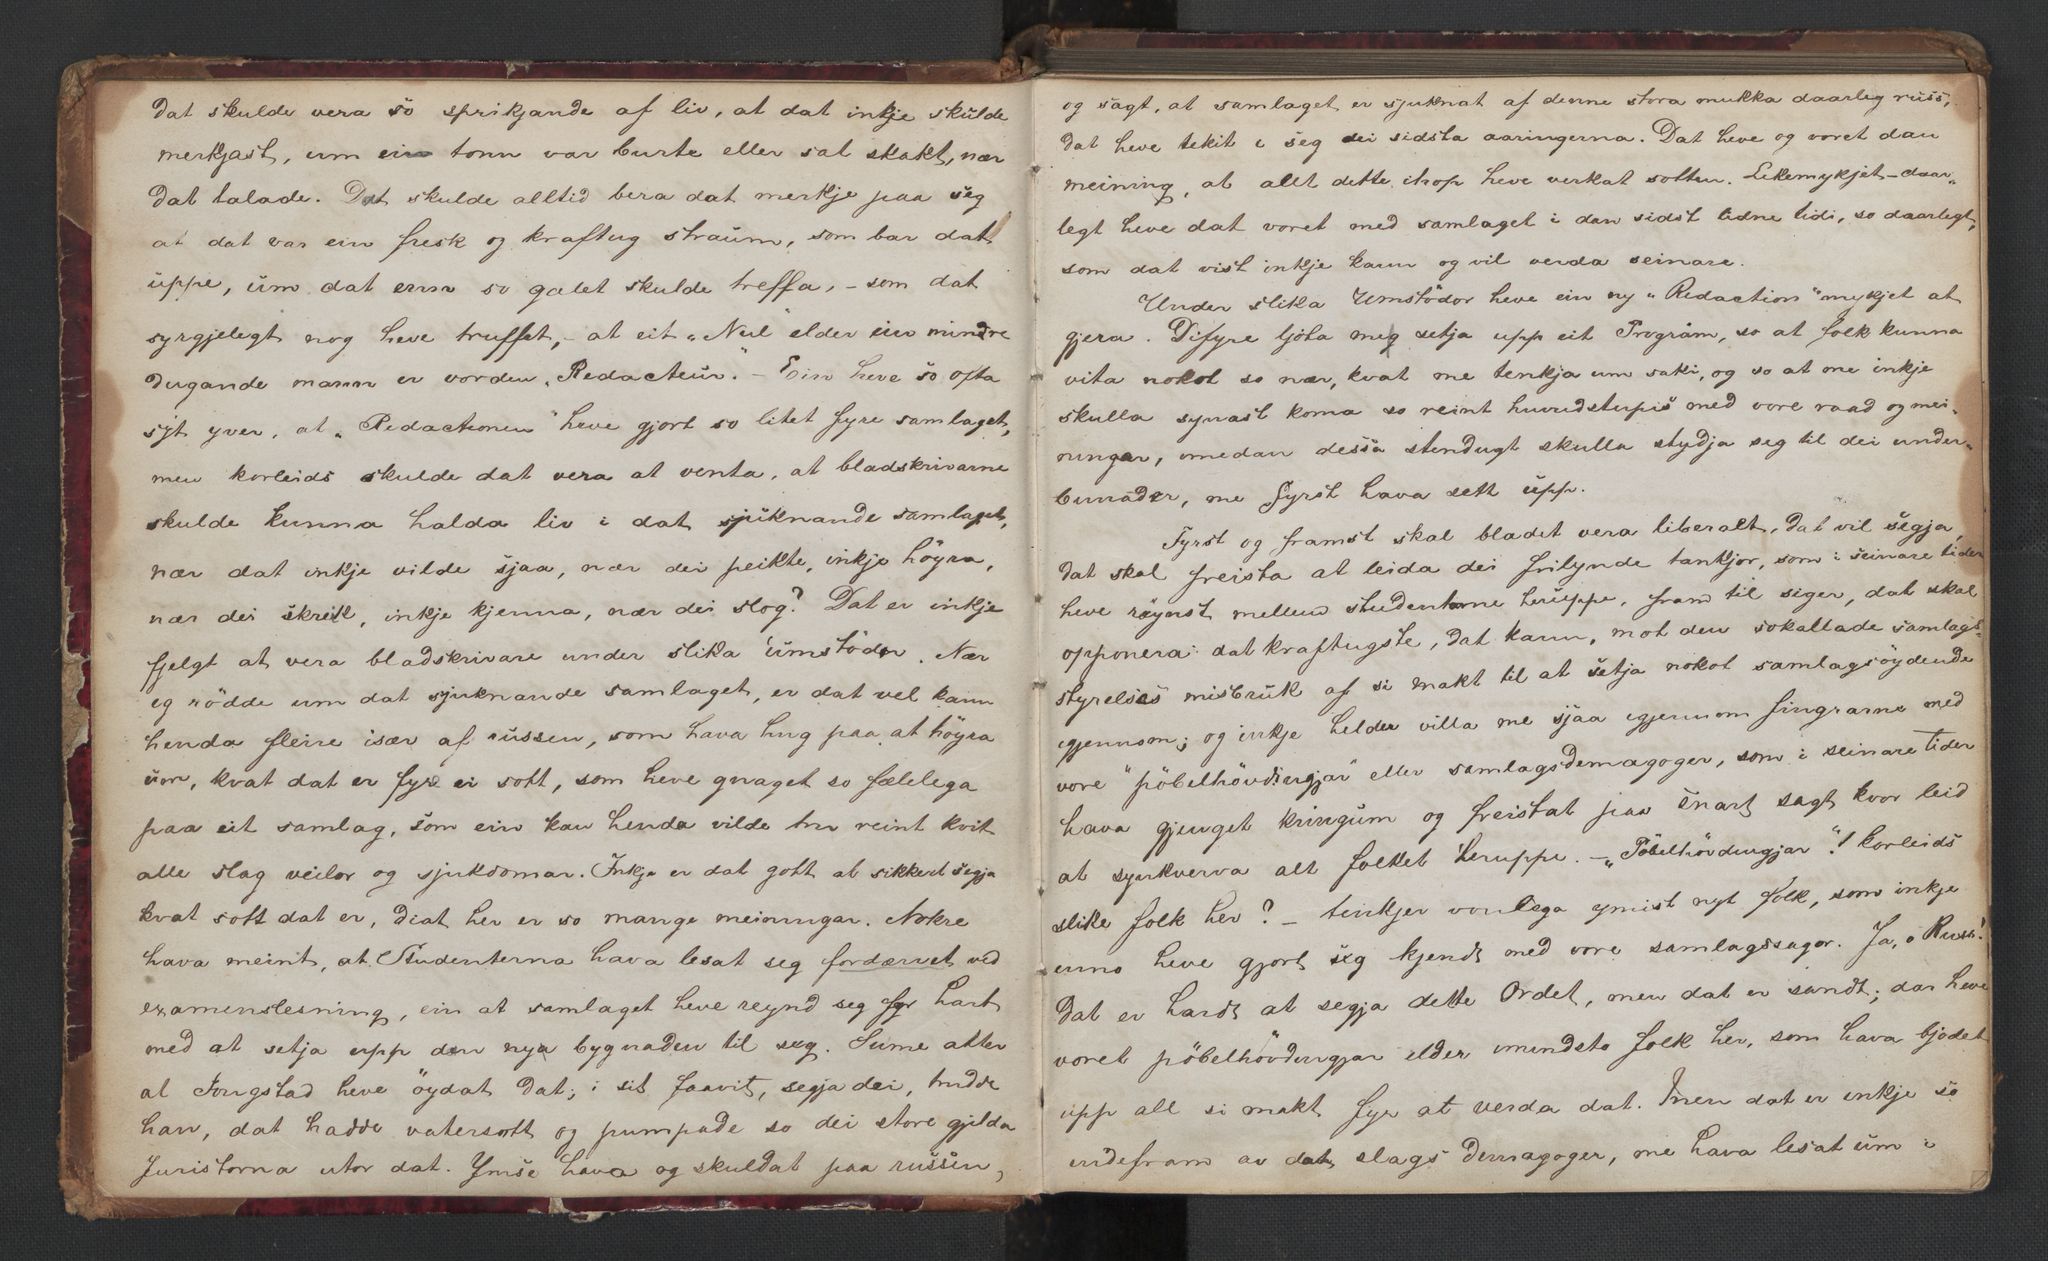 dat skulde vera so sprikjande af liv, at dat inkje skulde
merkjast, um ein tonn var burte eller sat skakt, nær
dat talade. Dat skulde alltid bera dat merkje paa seg
at dat var ein fresk og kraftug straum, som bar dat
uppe, um dat enn so galet skulde treffa, - som dat
syrgjelegt nog heve truffet, - at eit "Nul" elder ein mindre
dugande mann er vorden "Redacteur". - Ein heve so ofta
syt yver, at "Redactionen" heve gjort so litet fyre samlaget,
men korleids skulde dat vera at venta, at bladskrivarne
skulde kunna halda liv i dat sjuknande samlaget,
nær dat inkje vilde sjaa, nær dei peikte, inkje höyra,
nær dei skreik, inkje kjenna, nær dei slog? Dat er inkje
fjelgt at vera bladskrivare under slika umstöder. Nær
eg rödde um dat sjuknande samlaget, er dat vel kann
henda fleire især af russen, som hava hug paa at höyra
um, kvat dat er fyr ei sott, som heve gnaget so fælelega
paa eit samlag, som ein kan henda vilde tru reint kvit
alle slag veilor og sjukdomar. Inkje er dat gott at sikkert segja
kvat sott dat er, diat her er so mange meiningar. Nokre
hava meint, at Studenterna hava lesat seg fordærvet ved
examenslesning, ein at samlaget heve reynd seg fyr hart
med at setja upp den nya bygnaden til seg. Sume atter
at Tongstad heve öydat dat; i sit faavit, segja dei, trudde
han, dat hadde vatersott og pumpade so dei store gjilda
Juristorna utor dat. Ymse hava og skuldat paa russen,
og sagt, at samlaget er sjuknat af denne stora mukka daarleg russ,
dat heve tekit i seg dei sidsta aaringerna. Dat heve og voret dan
meining, at allt dette ihop heve verkat sotten. Likemykjet - daar-
legt heve dat voret med samlaget i dan sidst lidne tidi, so daarlegt,
som dat vist inkje kann og vil verda seinare.
Under slika Umstödor heve ein ny "Redaction" mykjet at
gjera. Difyre ljota me setja upp eit Program, so at folk kunna
vita nokot so nær, kvat me tenkja um saki, og so at me inkje
skulla synast koma so reint huvudstupis med vore raad og mei-
ningar, medan dessa stendugt skulla stydja seg til dei under-
bunader, me fyrst hava sett upp.
Fyrst og framst skal bladet vera liberalt, dat vil segja,
dat skal freista at leida dei frilynde tankjor, som i seinare tider
heve röynst mellem studentarne heruppe, fram til siger, dat skal
opponera dat kraftugste, dat kann, mot den sokallade samlags-
styrelses misbruk af si makt til at setja nokot samlagsöydende
igjennom; og inkje helder villa me sjaa igjennom fingrarne med
vore "pöbelhövdingjar" eller samlagsdemagoger, som i seinare tider
hava gjenget kringum og freistat paa snart sagt kvor leid
at synkverva alt folket heruppe. - "Pöbelhövdingjar"! korleids
slike folk her? - tenkjer vonlega ymist nyt folk, som inkje
enno heve gjort seg kjendt med vore samlagssagor. Ja, o Russ!
Dat er hardt at segja dette Ordet, men dat er sandt; dar heve
voret pöbelhövdingjar elder mindsto folk her, som hava bjodet
upp all si makt fyr at verda dat. Men dat er inkje so
endefram av dat slags demagoger, me hava lesat um i